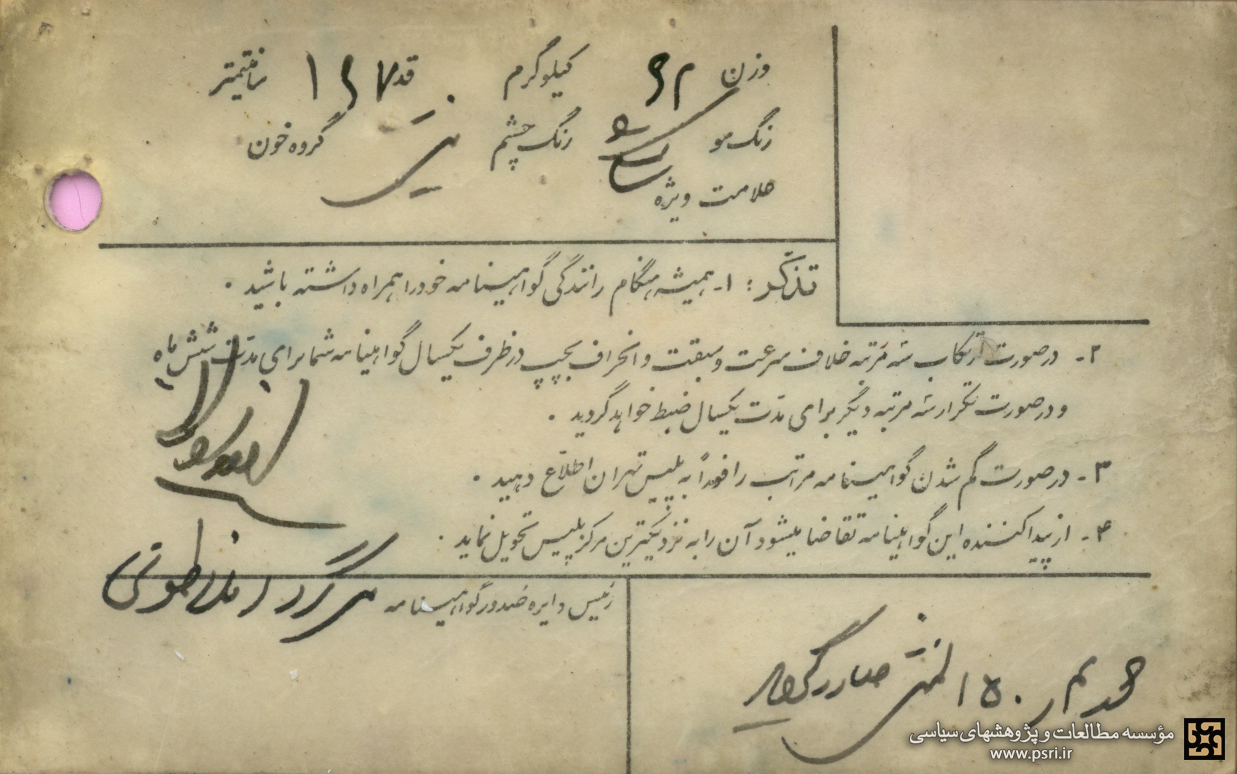 وزن ۶۲ کیلوگرم قد ۱۶۷ سانتیمتر
رنگ مو رنگ چشم گروه خون
علامت ویژه
تذکر: ۱- همیشه هنگام رانندگی گواهینامه خود را همراه داشته باشید.
۲- در صورت ارتکاب سه مرتبه خلاف سرعت و سبقت و انحراف بچپ در ظرف یکسال گواهینامه شما برای مدت شش ماه
و در صورت تکرار سه مرتبه دیگر برای مدت یکسال ضبط خواهد گردید.
۳- در صورت گم شدن گواهینامه مراتب را فوراً به پلیس تهران اطلاع دهید.
۴- از پیدا کننده این گواهینامه تقاضا میشود آن را به نزدیکترین مرکز پلیس تحویل نماید.
رئیس دایره صدور گواهینامه سرگرد
المثنی صادر گردید
مؤسسه مطالعات و پژوهشهای سیاسی
www.psri.ir